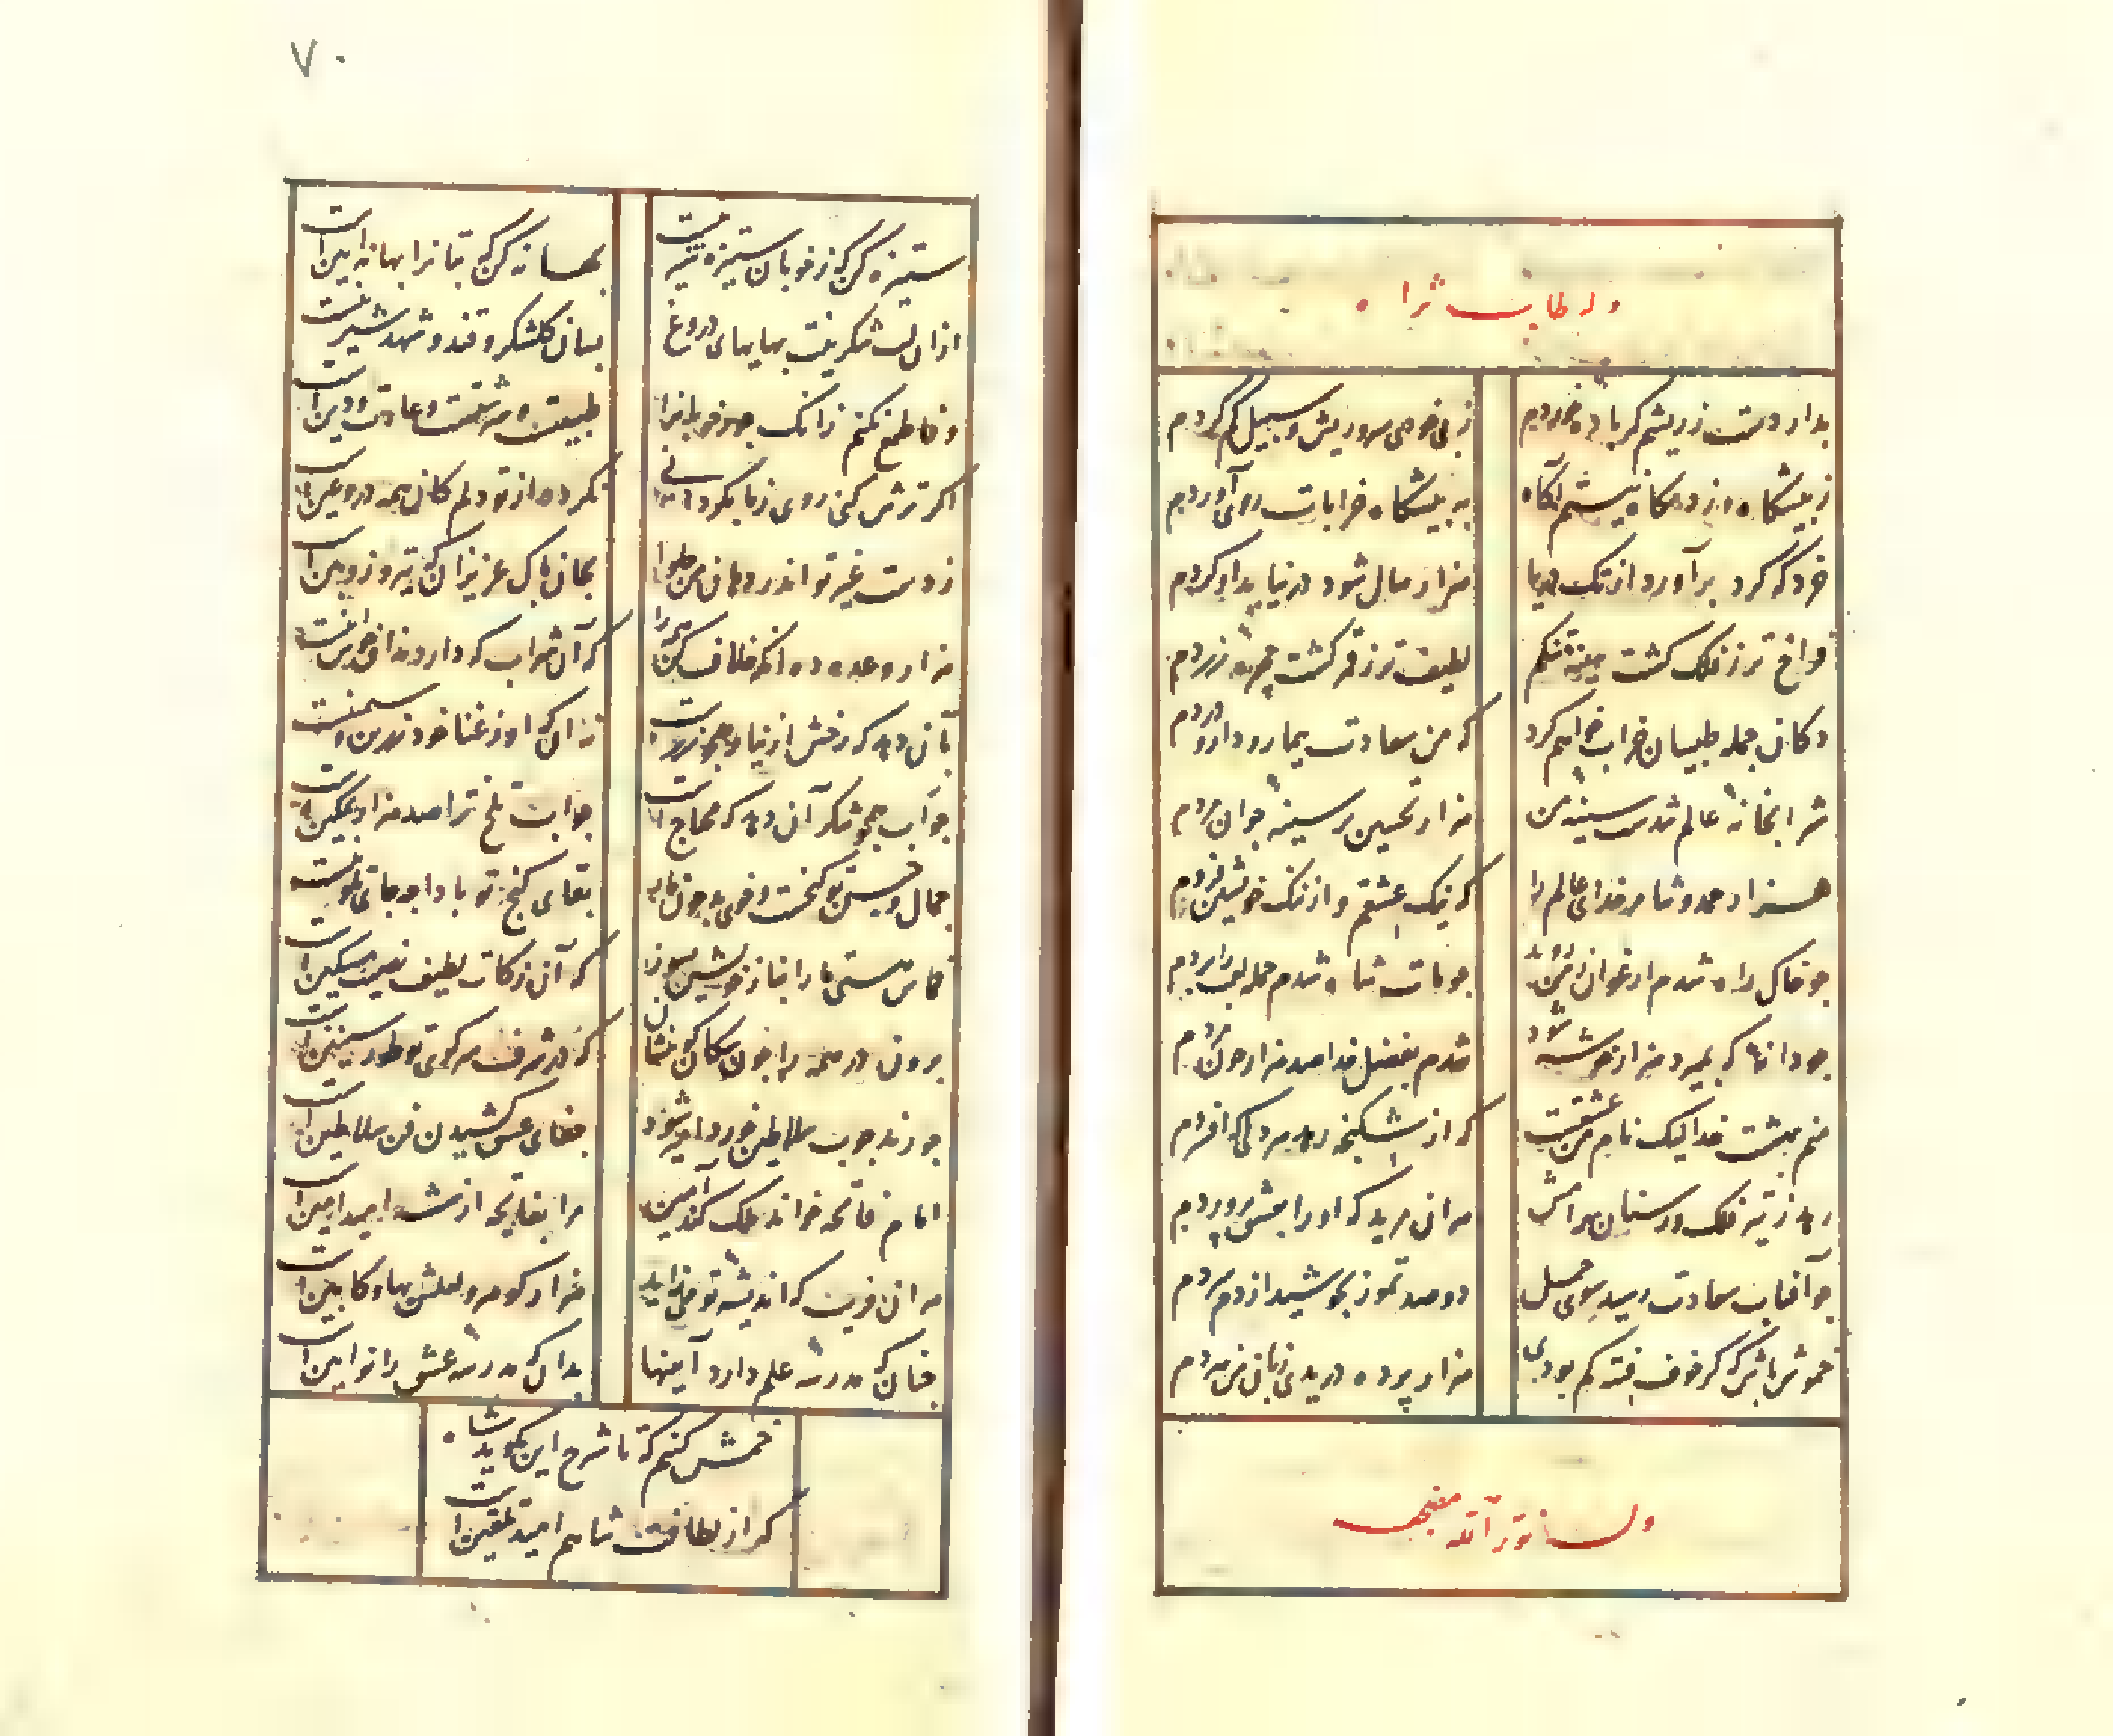 وله طاب ثراه
بدار دست ز ریشم که باده خوردم
ز بی خودی سر و ریش و سبیل گم کردم
ز پیشگاه و ز درگاه نیستم آگاه
به پیشگاه خرابات روی آوردم
خرد که گرد برآورد از تک دریا
هزار سال شود در نیابد او گردم
فراخ تر ز فلک گشت سینه تنگم
لطیف تر ز قمر گشت چهره زردم
دکان جمله طبیبان خراب خواهم کرد
که من سعادت بیمار و دارو دردم
شرابخانه عالم شدست سینه من
هزار تحسین بر سینه جوان مردم
هزار حمد و ثنا مر خدای عالم را
که نیک عشقم و از ننگ خویشتن فردم
چو خاک راه شدم ارغوان ز من
چو مات شاه شدم جمله لعب را بردم
چو دانه که بمیرد هزار خوشه شود
شدم بفضل خدا صد هزار چون مردم
منم بهشت خدا لیک نام من عشقست
که از شکنجه رهد هر دلی که افشردم
رهد ز تیر فلک وز سنان مریخش
هر آن مرید که او را بعشق پروردم
چو آفتاب سعادت رسید سوی حمل
دو صد تموز بجوشید از دم سردم
خموش باش که گر خوف فتنه کم بودی
هزار پرده دریدی زبان من هر دم
وله نور الله مضجعه
۷۰
ستیزه کن که ز خوبان ستیزه شیرینست
بهانه کن که بتانرا بهانه آیین است
از آن لب شکرینت بهانهای دروغ
بسان گلشکر و قند و شهد شیرینست
وفا طمع نکنم زانک جور خوبانرا
طبیعت و سرشتست و عادت و دین است
اگر ترش کنی روی ز ما بگردانی
نکرده از تو دلم کان همه دروغین است
ز دست غیر تو اندر دهان من حلوا
بجان پاک عزیزان که تیر و زوبین است
هزار وعده ده آنگه خلاف کن همه را
که آن شراب که دارد مذاق چرینست
بآن دهد که رخش از نیاز همچو زرست
نه آن که او ز غنا خود زرین و سیمینست
جواب همچو شکر آن دهد که محتاج است
جواب تلخ ترا صد هزار تمکین است
جمال و حسن تو گنجست و خوی بد چون مار
بقای گنج تو بادا چه جای تلوینست
قماش هستی ما را بناز خویش بسوز
که آن زکات لطیف نصیب مسکین است
برون در همه را چون سگان کو بنشان
که در شرف سر کوی تو طور سینین است
خورند چوب سلاطین خورد امیر شود
جفای عشق کشیدن فن سلاطین است
امام فاتحه خواند ملک کند آمین
مرا بفاتحه از شه امید آمین است
هر آن فریب که اندیشه تو می زاید
هزار گوهر و لعلش بها و کابین است
چنان که مدرسه علم دارد آیینها
بدان که مدرسه عشق را قوانین است
خمش کنم که تا شرح این بگوید شاه
که از لطافت شاهم امید تلقین است